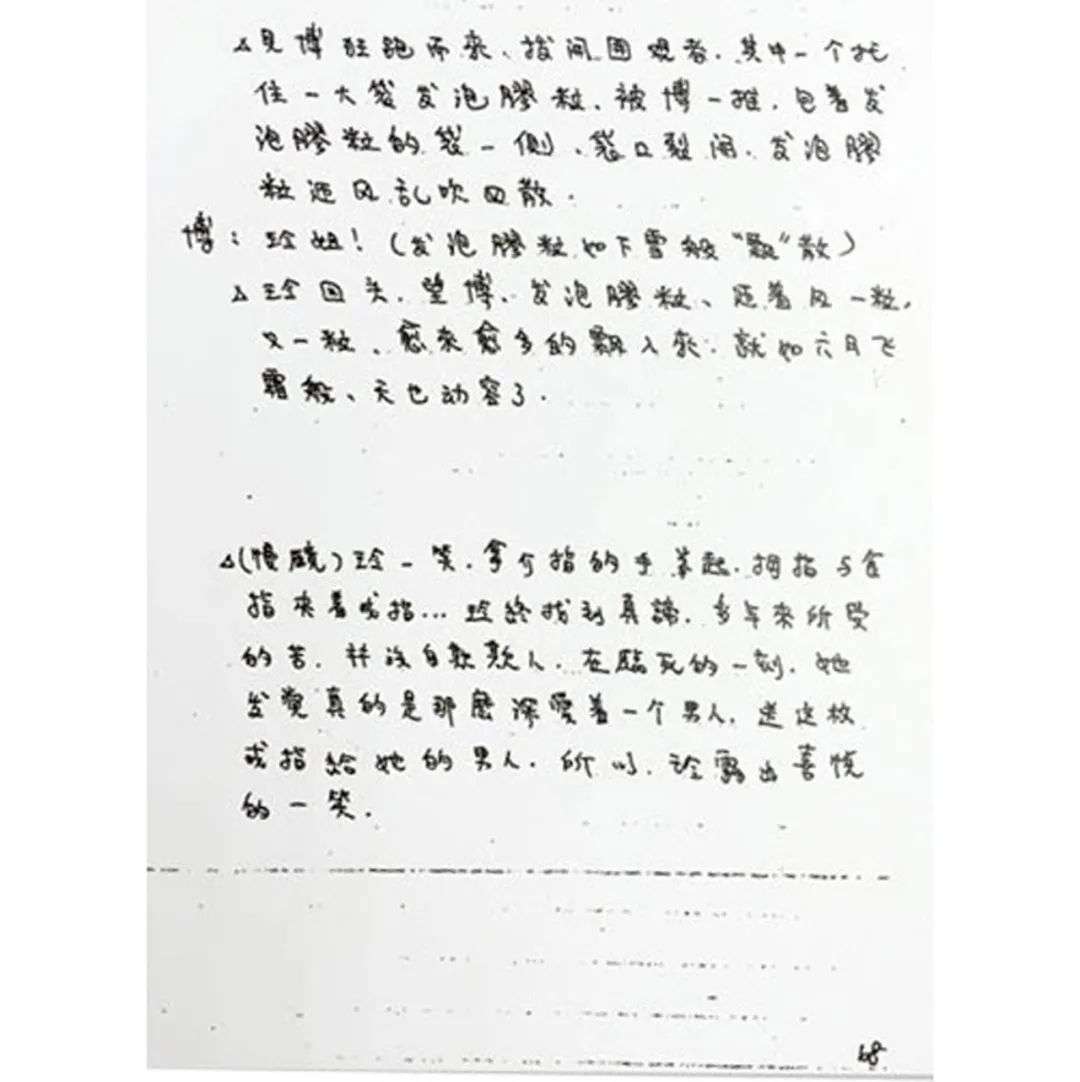 △見博狂跑而來、拨开围观者.其中一个托
住一大袋发泡膠粒、被博一推.包着发
泡膠粒的袋一侧、袋口裂开、发泡膠
粒迎风乱吹四散.
博:玲姐!(发泡膠粒如下雪般“飘”散)
△玲回头、望博、发泡膠粒、随着风一粒,
又一粒、愈來愈多的飘入來.就如六月飞
霜般、天也动容了.
△(慢鏡)玲一笑.拿介指的手举起.拇指与食
指夹着戒指…玲終找到真諦.多年來所受
的苦.并没自欺欺人.在臨死的一刻.她
发覺真的是那麼深愛着一个男人.送这枚
戒指給她的男人.所以.玲露出喜悦
的一笑.
68